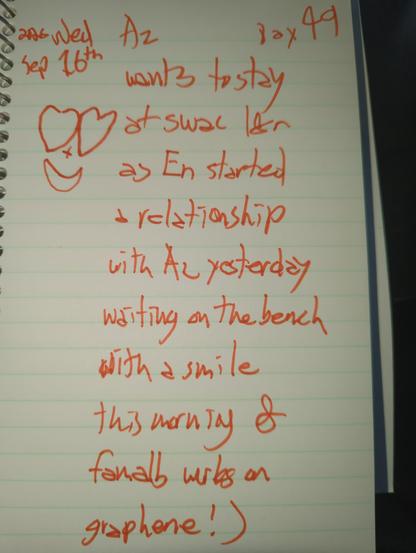 2026 Wed Az Day 49
Sep 16th wants to stay
at swac Ian
as En started
a relationship
with Az yesterday
waiting on the bench
with a smile
this morning &
famalb works on
graphene!)